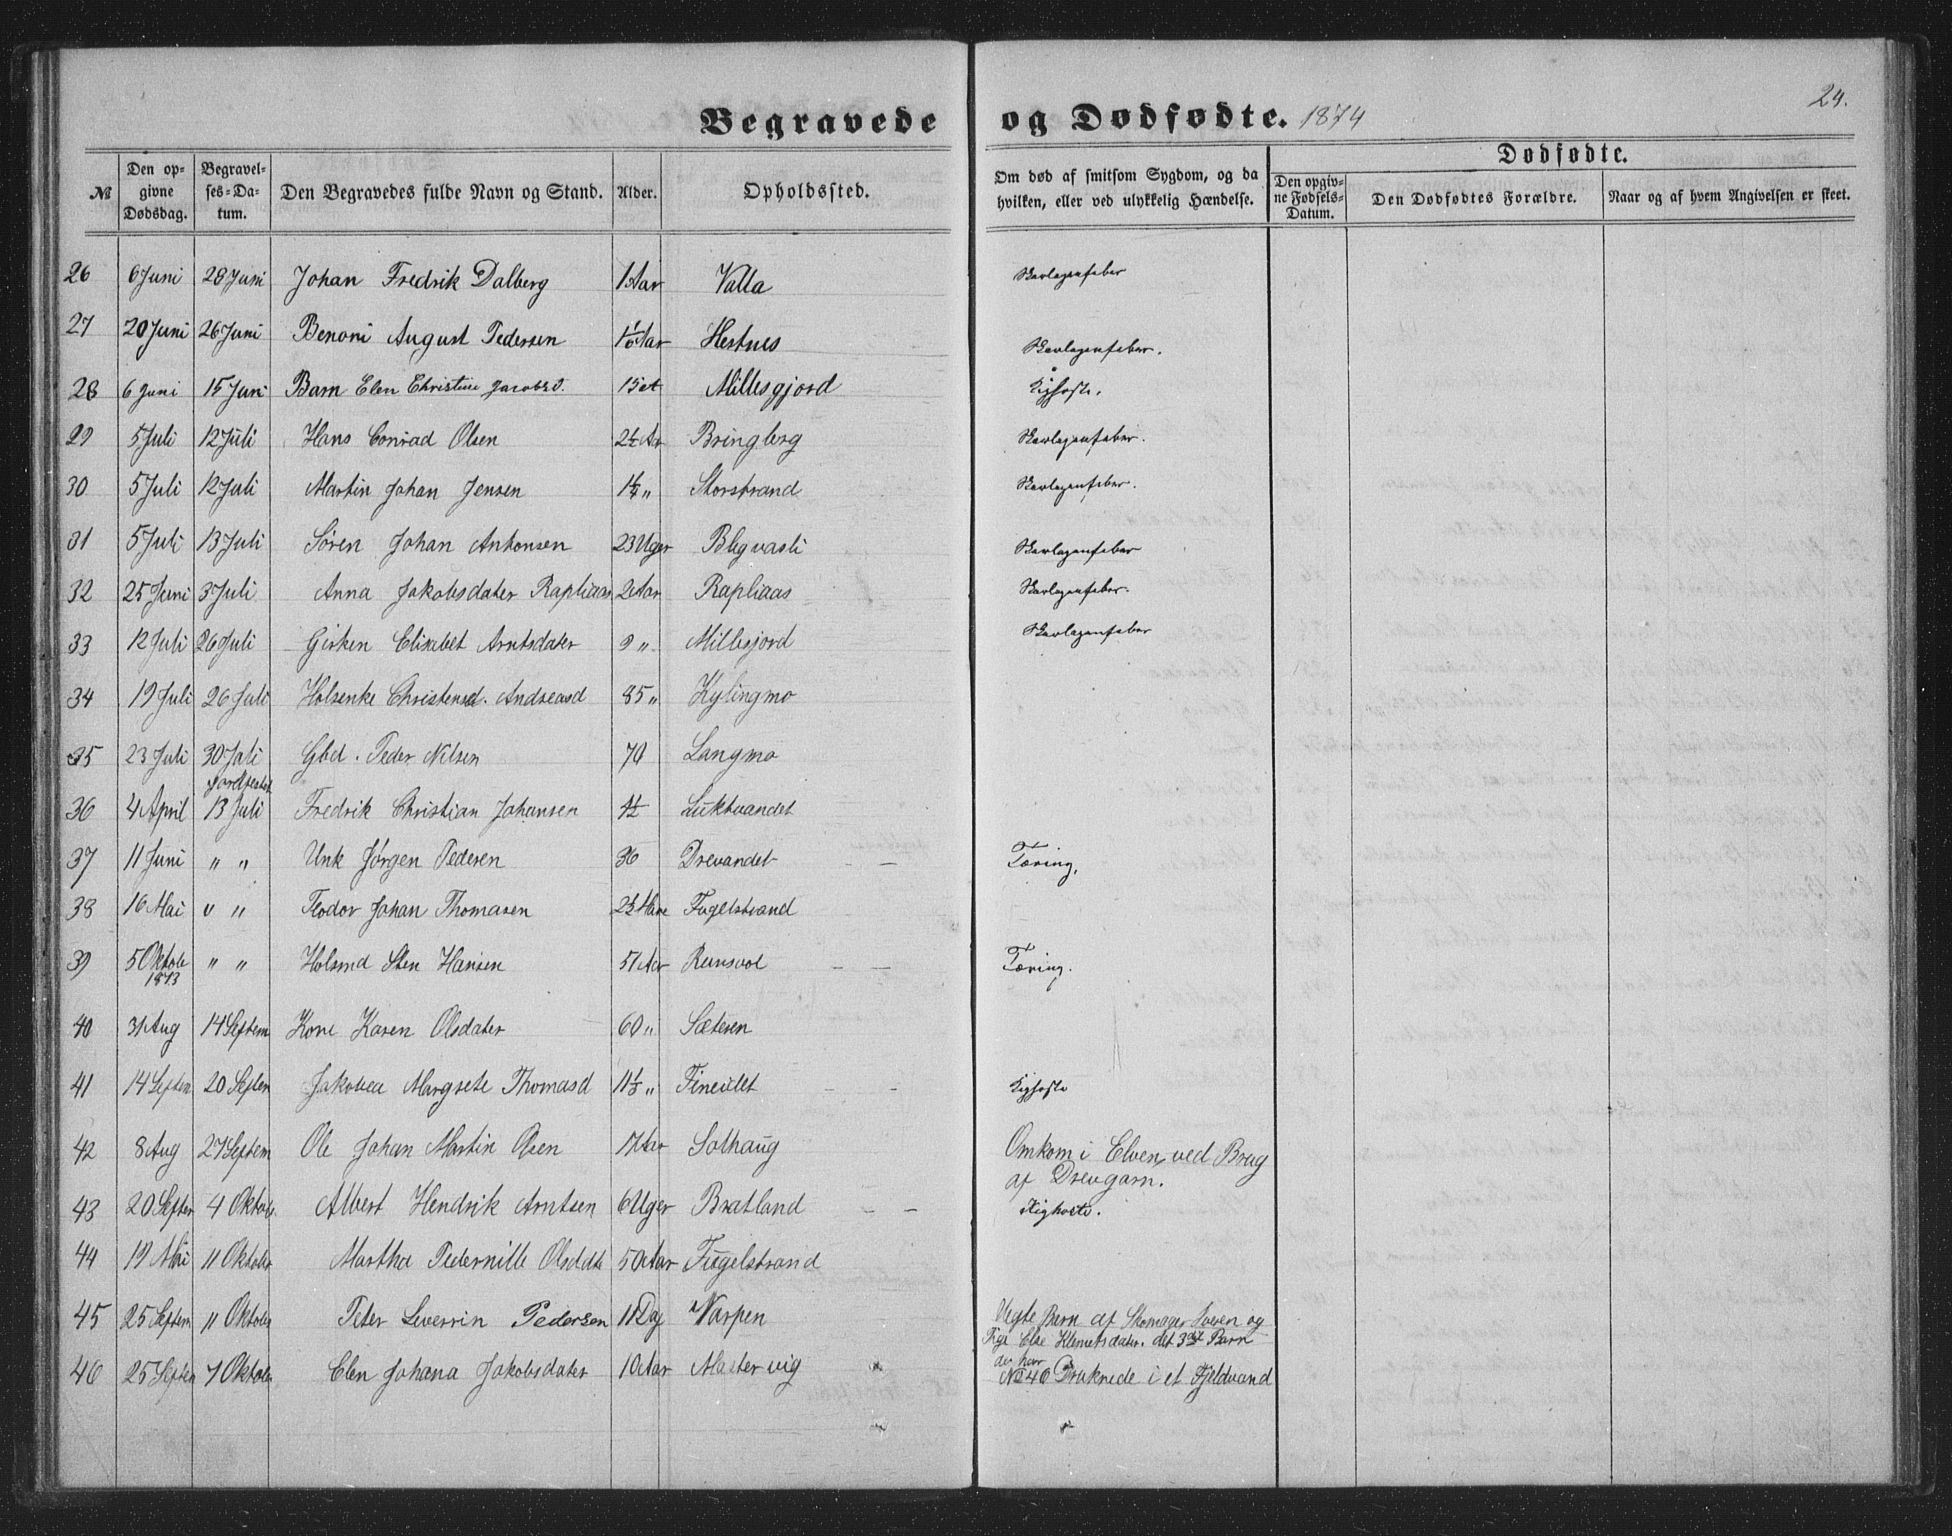 24.
Begravede og Dødfødte. 1874
№ Den opgivne Dødsdag. Begravelses-Datum. Den Begravedes fulde Navn og Stand. Alder. Opholdssted. Om død af smitsom Sygdom, og da hvilken, eller ved ulykkelig Hændelse. Dødfødte. Den opgivne Fødsels-Datum. Den Dødfødtes Forældre. Naar og af hvem Angivelsen er skeet.
26 6 Juni 28 Juni Johan Fredrik Dalberg 1 Aar Valla Skarlagensfeber
27 20 Juni 26 Juni Benoni August Pedersen Aar Hestnes Skarlagensfeber.
28 6 Juni 15 Juni Barn Elen Christine Jacobsd. Millesgjord Kighoste.
29 5 Juli 12 Juli Hans Conrad Olsen 2½ Ar Bringberg Skarlagensfeber.
30 5 Juli 12 Juli Martin Johan Jensen 1¼ „ Storstrand Skarlagensfeber.
31 5 Juli 13 Juli Søren Johan Antonsen 23 Uger Blegvasli Skarlagensfeber
32 25 Juni 3 Juli Anna Jakobsdater Rapliaas 2 Aar Rapliaas Skarlagensfeber.
33 12 Juli 26 Juli Girken Elisabet Arntsdater 9 „ Millesjord Skarlagensfeber
34 19 Juli 26 Juli Holsenke Christensd. Andreasd 85 „ Kylingmo
35 23 Juli 30 Juli Gbd. Peder Nilsen 70 Langmo
Jordfestet
36 4 April 13 Juli Fredrik Christian Johansen ½ Luktvandet
37 11 Juni „ „ Unk Jørgen Pedersen 36 Drevandet — — Tæring.
38 16 Mai „ „ Teodor Johan Thomasen 2½ Fugelstrand
39 5 Oktob „ „ Holsmd Sten Hansen 51 Aar Runsvol — — Tæring.
1873
40 31 Aug 14 Septem Kone Karen Olsdater 60 „ Sæteren
41 14 Septem 20 Septem Jakobea Margrete Thomasd 11½ „ Fineidet - - Kighoste
42 8 Aug 27 Septem Ole Johan Martin Olsen 17 Aar Solhaug Omkom i Elven ved Brug
af Drevgarn.
43 20 Septem 4 Oktob Albert Hendrik Arntsen 6 Uger Bratland — — Kighoste.
44 19 Mai 11 Oktober Martha Pedernille Olsddt 50 Aar Fugelstrand
45 25 Septem 11 Oktober Peter Severin Pedersen 11 Dag Varpen Uegte Barn af Skomager Soven og
Pige Else Klemetsdater. det 3die Barn
der har
46 25 Septem 7 Oktober Elen Johana Jakobsdater 10 Aar Mastervig No 46 Druknede i et Fjeldvand